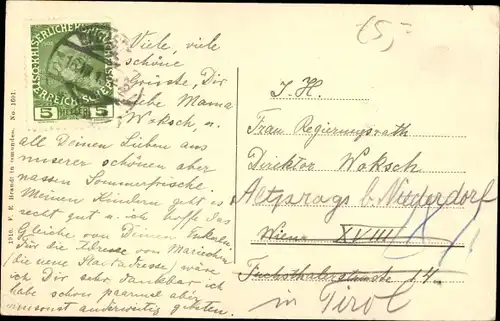 KAISERLICHE KÖNIGLICHE
ÖSTERREICHISCHE POST
5 HELLER 5
1910. F. E. Brandt in Gmunden. No. 1601.
15,-
Viele, viele
schöne
Grüsse, Dir
liebe Mama
Woksch, u.
all Deinen Lieben aus
unserer schönen aber
nassen Sommerfrische.
Meinen Kindern geht es
recht gut u. ich hoffe das
Gleiche von Deinen Enkeln.
Für die Adresse von Mariechen
(die neue Stadtadresse) wäre
ich Dir sehr dankbar ich
habe schon paarmal aber
umsonst anderweitig gebeten.
I. H.
Frau Regierungsrath
Direktor Woksch
Altprags b. Niederdorf
Wien XVIII/1
Fuchsthalerstrasse 14.
in Tirol